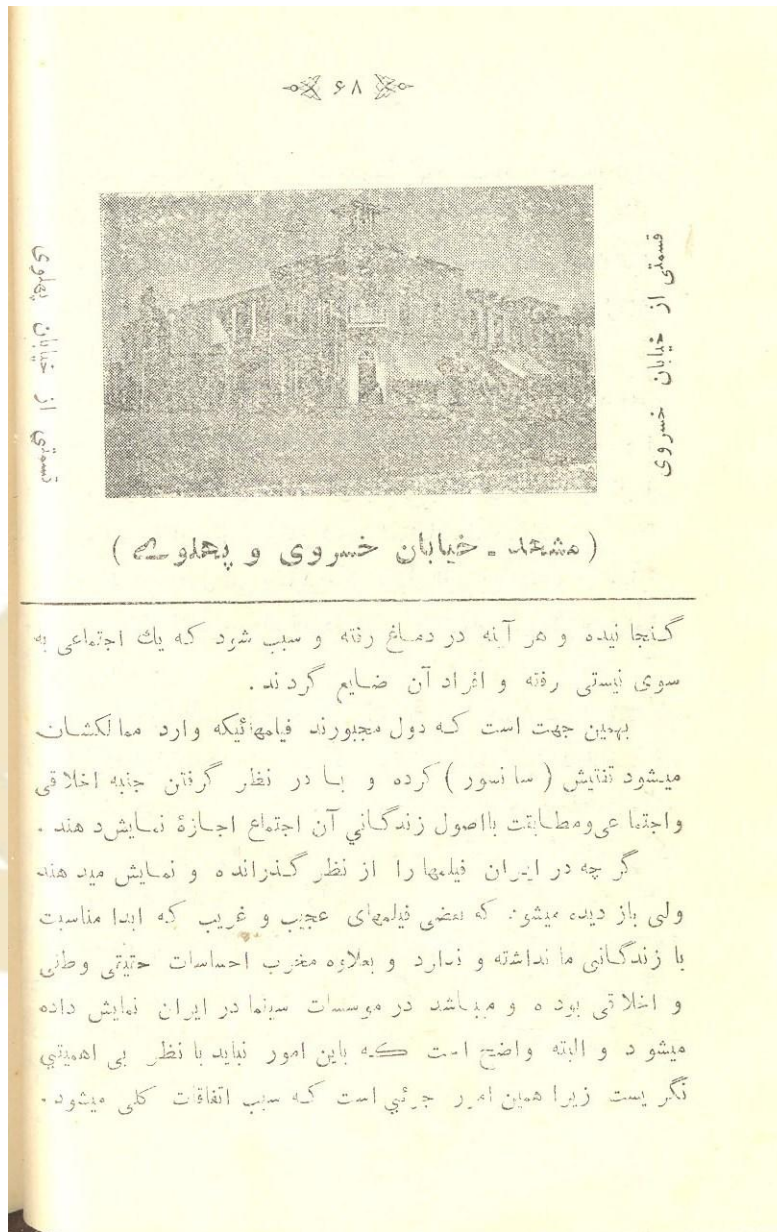 ۶۸
قسمتی از خیابان خسروی
قسمتی از خیابان پهلوی
( مشهد - خیابان خسروی و پهلوی )
گنجا نیده و هر آینه در دماغ رفته و سبب شود که یك اجتماعی به
سوی نیستی رفته و افراد آن ضایع گردند .
بهمین جهت است که دول مجبورند فیلمهائیکه وارد ممالکشان
میشود تفتیش ( سانسور ) کرده و با در نظر گرفتن جنبه اخلاقی
واجتماعی ومطابقت بااصول زندگانی آن اجتماع اجازهٔ نمایش دهند .
گر چه در ایران فیلمها را از نظر گذرانده و نمایش میدهند
ولی باز دیده میشود که بعضی فیلمهای عجیب و غریب که ابدا مناسبت
با زندگانی ما نداشته و ندارد و بعلاوه مخرب احساسات حقیقی وطنی
و اخلاقی بوده و میباشد در موسسات سینما در ایران نمایش داده
میشود و البته واضح است که باین امور نباید با نظر بی اهمیتی
نگریست زیرا همین امور جزئی است که سبب اتفاقات کلی میشود .